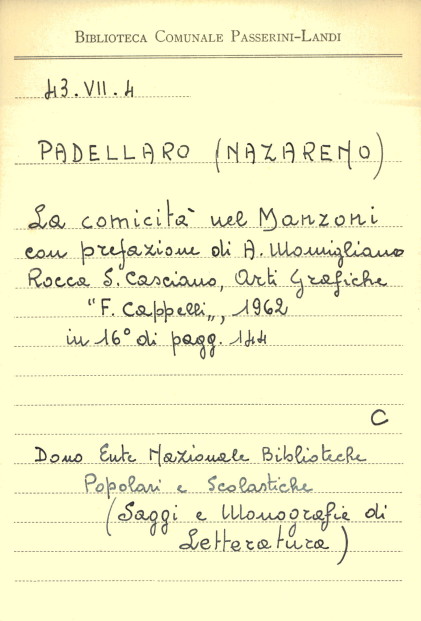 BIBLIOTECA COMUNALE PASSERINI-LANDI
43.VII.4
PADELLARO (NAZARENO)
La comicità nel Manzoni
con prefazione di A. Momigliano
Rocca S. Casciano, Arti Grafiche
"F. Cappelli„, 1962
in 16° di pagg. 144
C
Dono Ente Nazionale Biblioteche
Popolari e Scolastiche
(Saggi e Monografie di
Letteratura)